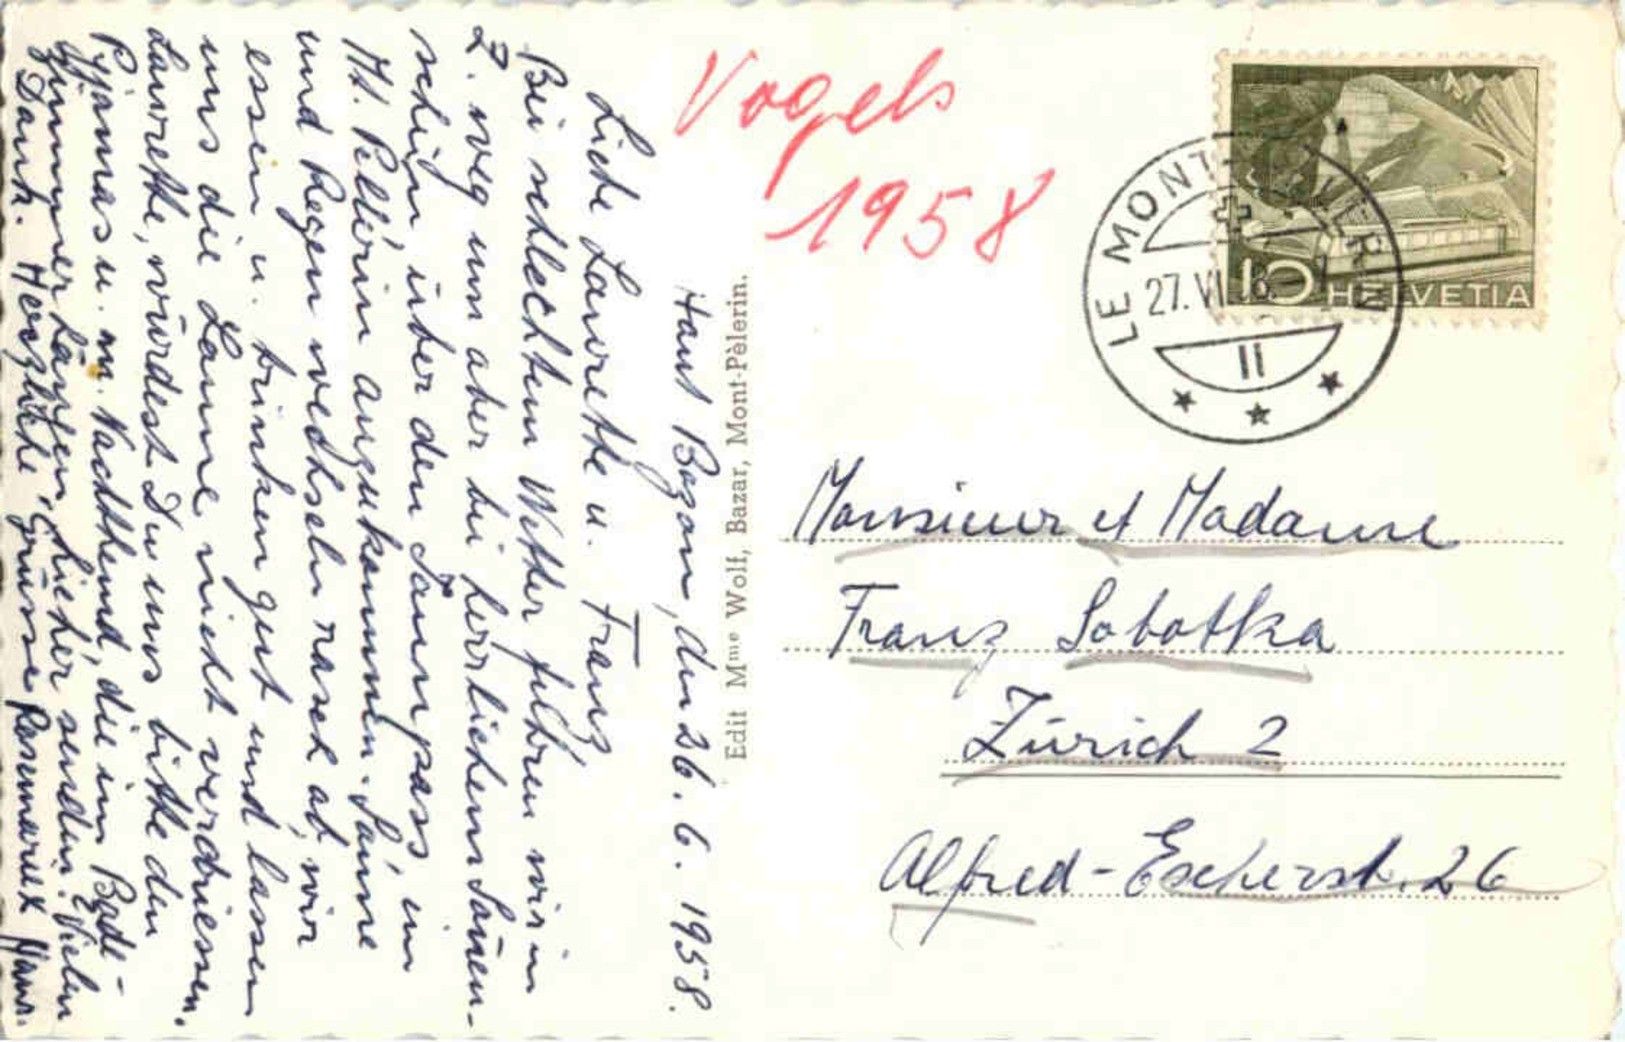 Haut Bazon, den 26. 6. 1958.
Liebe Laurette u. Franz,
Bei schlechtem Wetter fuhren wir in
Z. weg um aber bei herrlichem Sonnen-
schein über den Jaunpass, im
Mt. Pélérin anzukommen. Sonne
und Regen wechseln rasch ab, wir
essen u. trinken gut und lassen
uns die Laune nicht verdriessen.
Laurette, würdest Du uns bitte den
Pyjamas u. m. Nachthemd, die im Bade-
zimmer hängen, hieher senden. Vielen
Dank. Herzliche Grüsse Rosmarie x Hans.
Edit Mme Wolf, Bazar, Mont-Pèlerin.
Vogels
1958
LE MONT-PÈLERIN
27. VI. 58
II
10 HELVETIA
Monsieur et Madame
Franz Sobotka
Zürich 2
Alfred-Escherst. 26